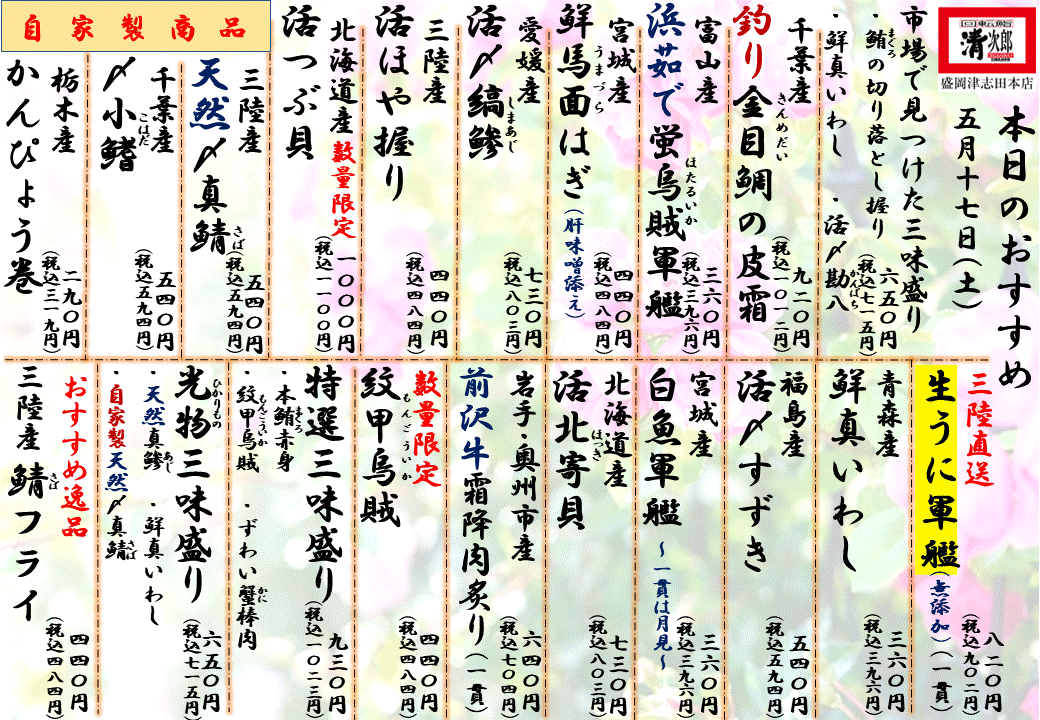 回転鮨
清次郎
盛岡津志田本店
本日のおすすめ
五月十七日(土)
市場で見つけた三味盛り
・鮪の切り落とし握り
まぐろ
・鮮真いわし ・活〆勘八
かんぱち
六五〇円
(税込七一五円)
千葉産
釣り金目鯛の皮霜
きんめだい
九二〇円
(税込一〇一二円)
富山産
浜茹で蛍烏賊軍艦
ほたるいか
三六〇円
(税込三九六円)
宮城産
鮮馬面はぎ(肝味噌添え)
うまづら
四四〇円
(税込四八四円)
愛媛産
活〆縞鯵
しまあじ
七三〇円
(税込八〇三円)
三陸産
活ほや握り
四四〇円
(税込四八四円)
北海道産 数量限定
活つぶ貝
一〇〇〇円
(税込一一〇〇円)
自家製商品
三陸産
天然〆真鯖
さば
五四〇円
(税込五九四円)
千葉産
〆小鰭
こはだ
五四〇円
(税込五九四円)
栃木産
かんぴょう巻
二九〇円
(税込三一九円)
三陸直送
生うに軍艦(無添加)(一貫)
八二〇円
(税込九〇二円)
青森産
鮮真いわし
三六〇円
(税込三九六円)
福島産
活〆すずき
五四〇円
(税込五九四円)
宮城産
白魚軍艦 ~一貫は月見~
三六〇円
(税込三九六円)
北海道産
活北寄貝
ほっき
七三〇円
(税込八〇三円)
岩手・奥州市産
前沢牛霜降肉炙り(一貫)
六四〇円
(税込七〇四円)
数量限定
紋甲烏賊
もんごういか
四四〇円
(税込四八四円)
特選三味盛り
・本鮪赤身 ・ずわい蟹棒肉
まぐろ
かに
・紋甲烏賊
もんごういか
九三〇円
(税込一〇二三円)
光物三味盛り
ひかりもの
・天然真鯵 ・鮮真いわし
あじ
・自家製天然〆真鯖
さば
六五〇円
(税込七一五円)
おすすめ逸品
三陸産 鯖フライ
さば
四四〇円
(税込四八四円)